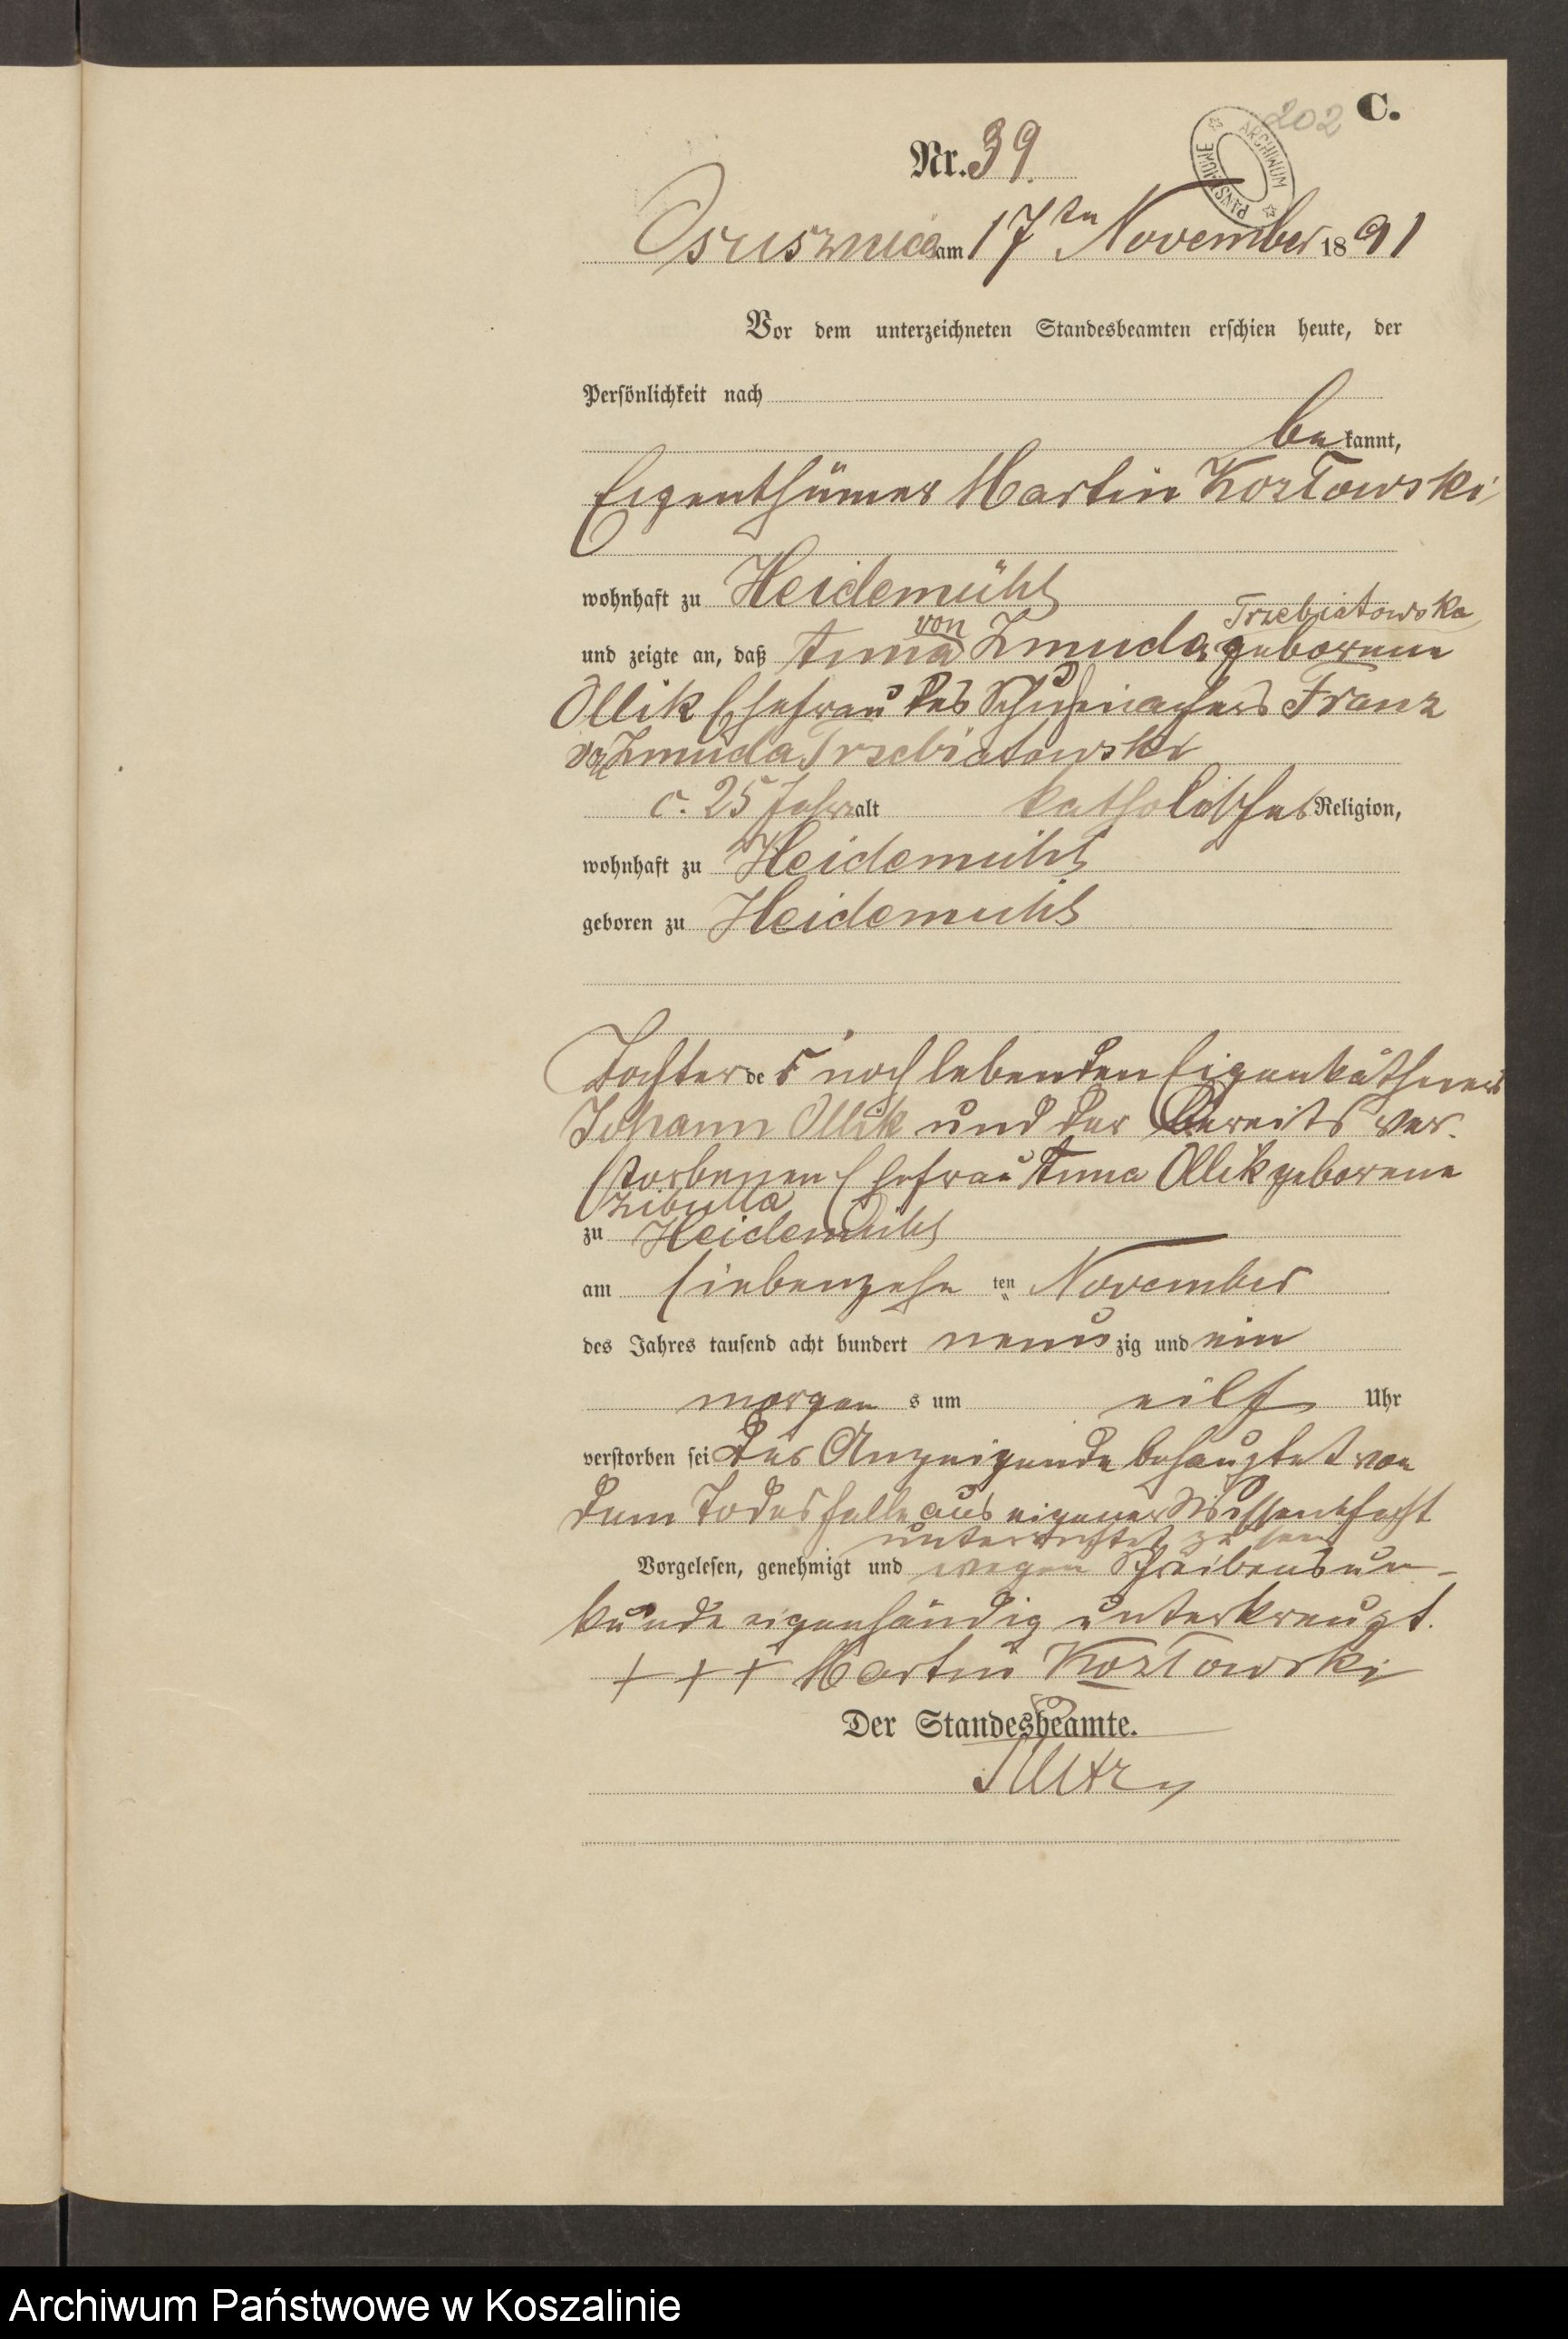 202 C.
ARCHIWUM PAŃSTWOWE
Nr. 39.
Osusznica am 17ten November 1891
Vor dem unterzeichneten Standesbeamten erschien heute, der
Persönlichkeit nach
be kannt,
Eigenthümer Martin Kozłowski
wohnhaft zu Heidemühl
Trzebiatowska
und zeigte an, daß Anna von Zmuda geborene
Ollik Ehefrau des Schuhmachers Franz
von Zmuda Trzebiatowski
c. 25 Jahr alt katholischer Religion,
wohnhaft zu Heidemühl
geboren zu Heidemühl
Tochter des noch lebenden Eigenkäthners
Johann Ollik und der bereits ver-
storbenen Ehefrau Anna Ollik geborene
Zibulla
zu Heidemühl
am siebenzehn ten November
des Jahres tausend acht hundert neun zig und ein
morgen s um eilf Uhr
verstorben sei der Anzeigende behauptet von
dem Todesfalle aus eigener Wissenschaft
unterrichtet zu sein
Vorgelesen, genehmigt und wegen Schreibensun-
kunde eigenhändig unterkreuzt.
+ + + Martin Kozłowski
Der Standesbeamte.
Archiwum Państwowe w Koszalinie